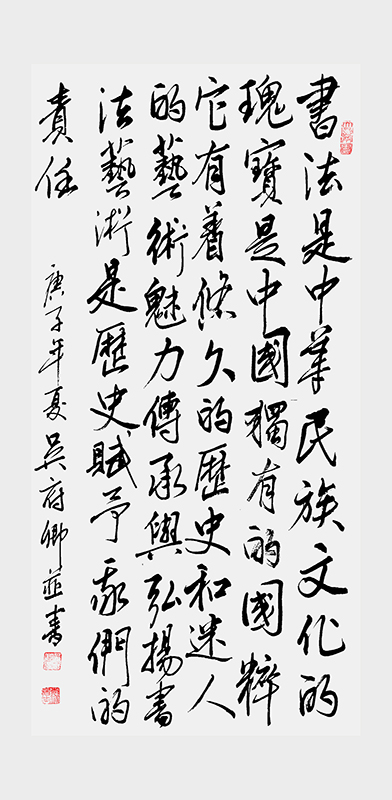 書法是中華民族文化的
瑰寶是中國獨有的國粹
它有着悠久的歷史和迷人
的藝術魅力傳承與弘揚書
法藝術是歷史賦予我們的
責任
庚子年夏吳府卿並書